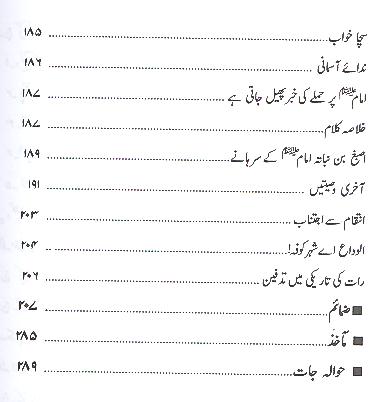 سچا خواب ........ ۱۸۵
ندائے آسمانی ........ ۱۸۶
امام علیہ السلام پر حملے کی خبر پھیل جاتی ہے ........ ۱۸۷
خلاصہ کلام ........ ۱۸۷
اصبغ بن نباتہ امام علیہ السلام کے سرہانے ........ ۱۸۹
آخری وصیتیں ........ ۱۹۱
انتقام سے اجتناب ........ ۲۰۳
الوداع اے شہر کوفہ! ........ ۲۰۴
رات کی تاریکی میں تدفین ........ ۲۰۶
■ ضمائم ........ ۲۰۷
■ مآخذ ........ ۲۸۵
■ حوالہ جات ........ ۲۸۹